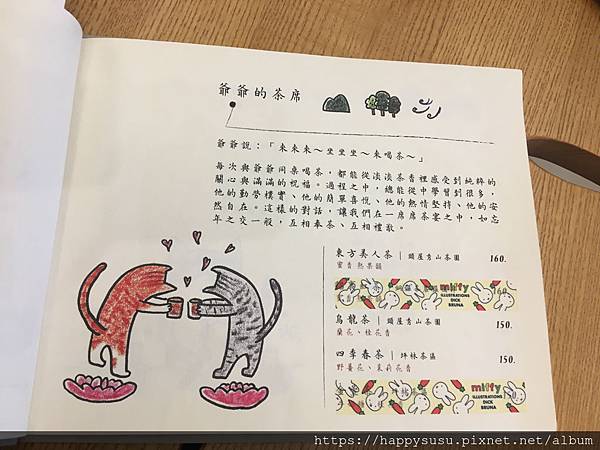 爺爺的茶席
爺爺說：「來來來～坐坐坐～來喝茶～」
每次與爺爺同桌喝茶，都能從淡淡茶香裡感受到純粹的
關心與滿滿的祝福。過程之中，總能從中學習到很多，
他的勤勞樸實、他的簡單喜悅、他的熱情堅持、他的安
然自在。這樣的對話，讓我們在一席席茶宴之中，如忘
年之交一般，互相奉茶、互相禮敬。
東方美人茶｜頭屋秀山茶園 160.
蜜香熟果韻
miffy
ILLUSTRATIONS
DICK
BRUNA
烏龍茶｜頭屋秀山茶園 150.
蘭花、桂花香
四季春茶｜坪林茶區 150.
野薑花、茉莉花香
miffy
ILLUSTRATIONS
DICK
BRUNA
https://happysusu.pixnet.net/album